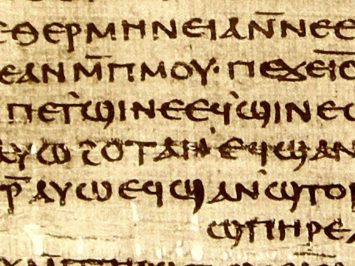 ⲉⲑⲉⲣⲙⲏⲛⲉⲓⲁⲛ̄ⲛⲉⲉ
ⲉⲁⲛⲙ̄ⲡⲙⲟⲩ·ⲡⲉϫⲉⲓ̄
ⲡⲉⲧ'ϣⲓⲛⲉⲉϥ'ϣⲓⲛⲉ
ⲁⲩⲱϩⲟⲧⲁⲛ'ⲉϥϣⲁⲛ
ⲣ̄ⲁⲩⲱⲉϥϣⲁⲛ'ϣⲧⲟⲣ
ϣⲡⲏⲣⲉ